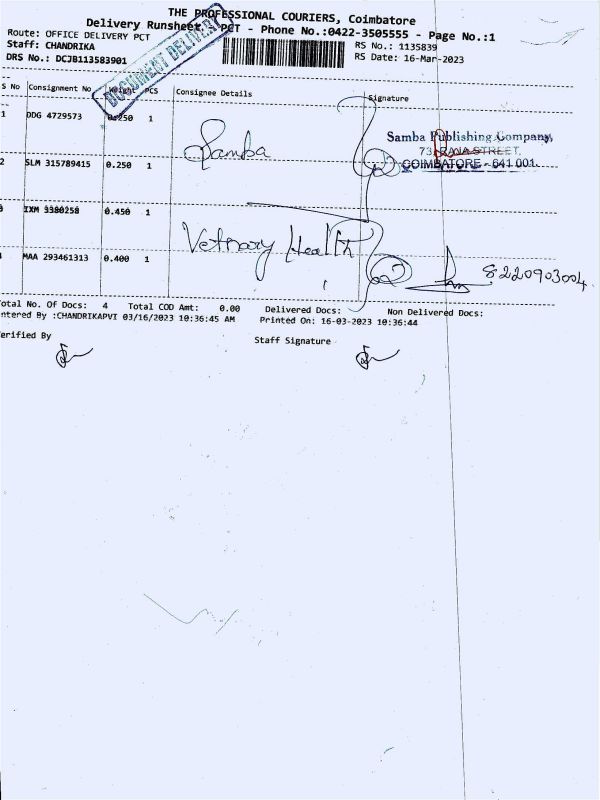 THE PROFESSIONAL COURIERS, Coimbatore
Delivery Runsheet - PCT - Phone No.:0422-3505555 - Page No.:1
Route: OFFICE DELIVERY PCT
Staff: CHANDRIKA
DRS No.: DCJB113583901
RS No.: 1135839
RS Date: 16-Mar-2023
DOCUMENT DELIVERY
S No Consignment No Weight PCS Consignee Details Signature
1 DDG 4729573 0.250 1
2 SLM 315789415 0.250 1
Samba
Samba Publishing Company,
73, RAJA STREET,
COIMBATORE - 641 001.
3 IXM 3380258 0.450 1
Vetnary Health
MAA 293461313 0.400 1
8220903004
otal No. Of Docs: 4 Total COD Amt: 0.00 Delivered Docs: Non Delivered Docs:
ntered By :CHANDRIKAPVT 03/16/2023 10:36:45 AM Printed On: 16-03-2023 10:36:44
erified By Staff Signature